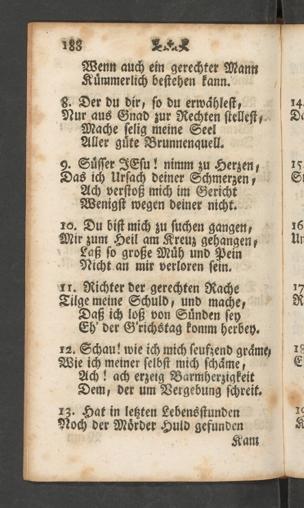 188
Wenn auch ein gerechter Mann
Kümmerlich bestehen kann.
8. Der du dir, so du erwählest,
Nur aus Gnad zur Rechten stellest,
Mache selig meine Seel
Aller güte Brunnenquell.
9. Süsser JEsu! nimm zu Herzen,
Das ich Ursach deiner Schmerzen,
Ach verstoß mich im Gericht
Wenigst wegen deiner nicht.
10. Du bist mich zu suchen gangen,
Mir zum Heil am Kreuz gehangen,
Laß so große Müh und Pein
Nicht an mir verloren sein.
11. Richter der gerechten Rache
Tilge meine Schuld, und mache,
Daß ich loß von Sünden sey
Eh' der G'richstag komm herbey.
12. Schau! wie ich mich seufzend gräme,
Wie ich meiner selbst mich schäme,
Ach! ach erzeig Barmherzigkeit
Dem, der um Vergebung schreit.
13. Hat in letzten Lebensstunden
Noch der Mörder Huld gefunden
Kant